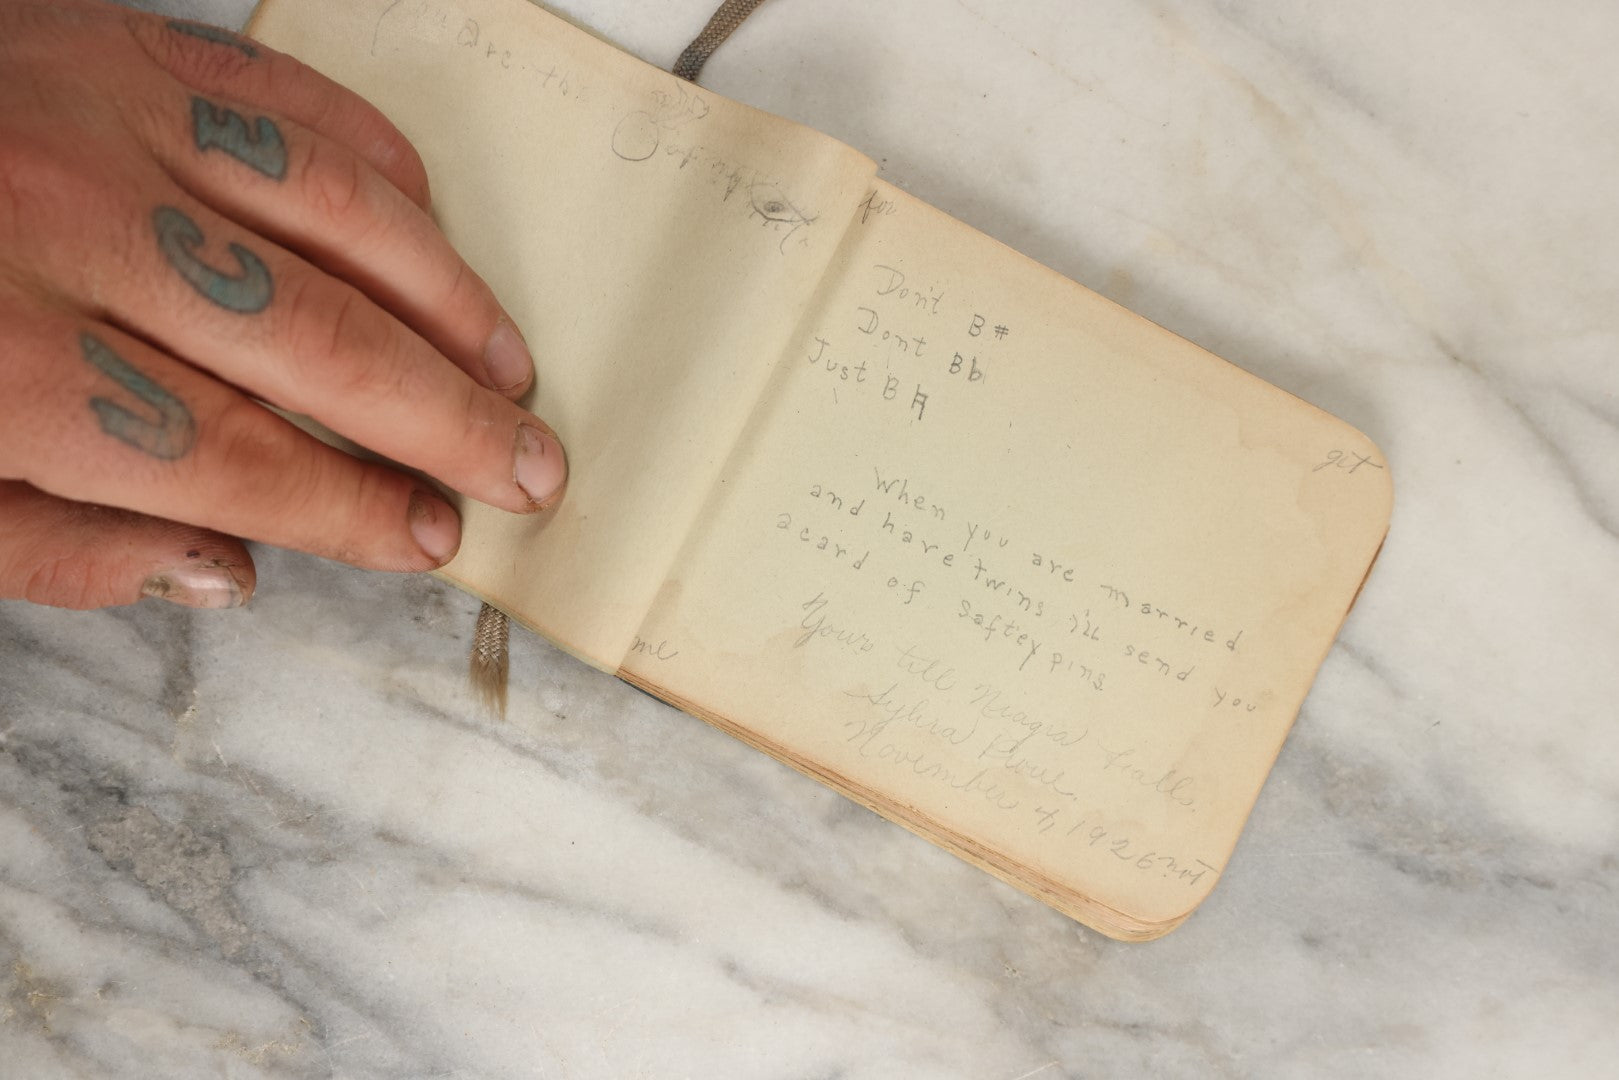 You are the
of my
for
Don't B#
Dont Bb
Just B♮
get
When you are married
and have twins i'll send you
a card of saftey pins.
Yours till Niagra Falls.
Sylvia
November 4, 1926
me
not
U C E